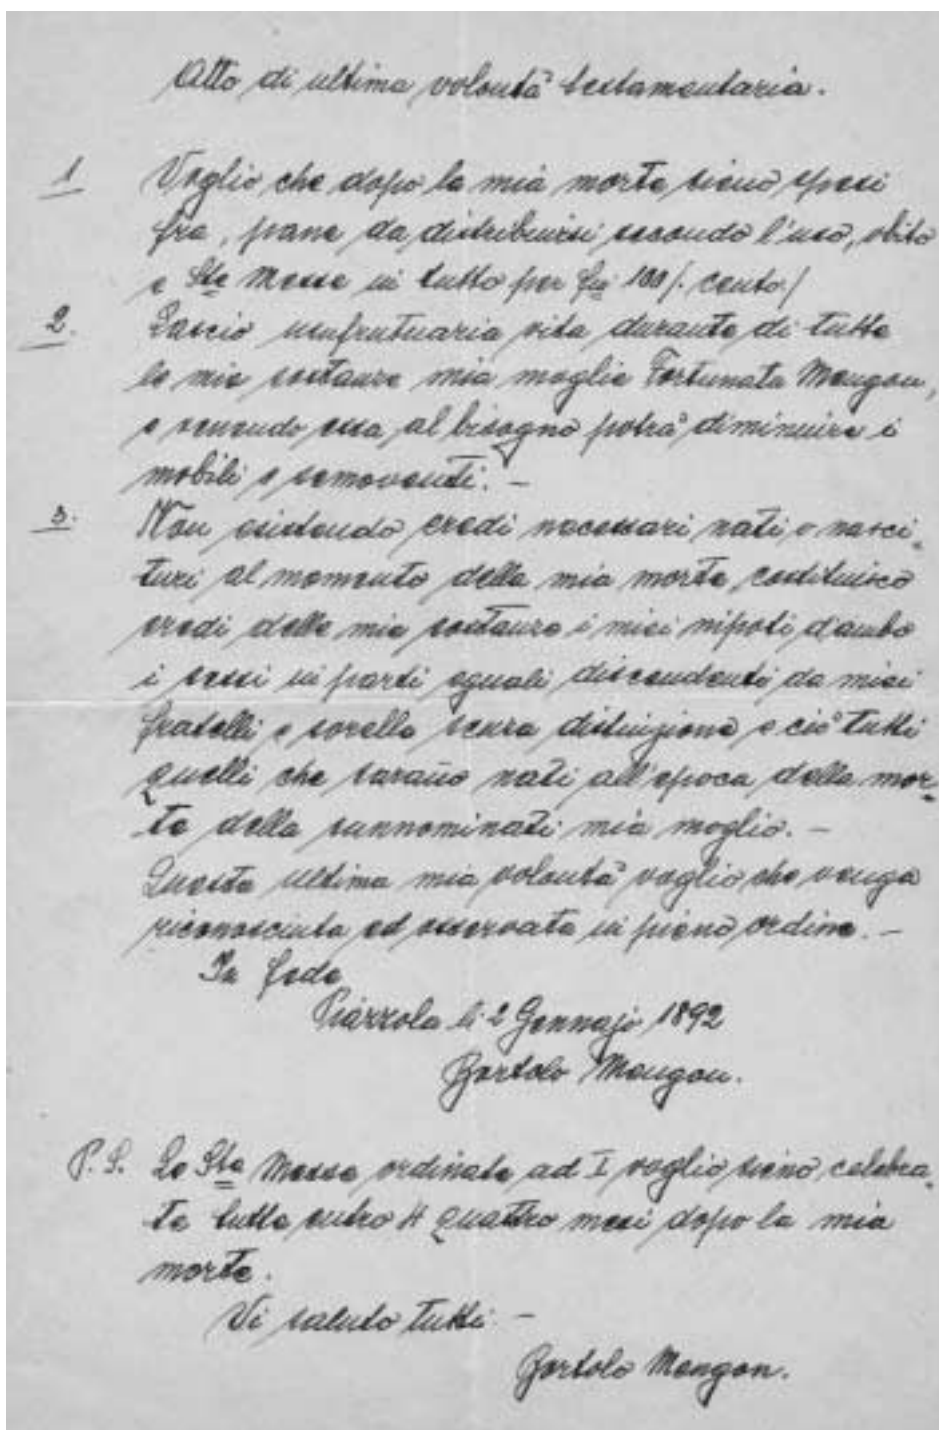 Atto di ultima volontà testamentaria.
1 Voglio che dopo la mia morte sieno spesi
fra, pane da distribuirsi secondo l'uso, obito
e Ste Messe in tutto per 100 /. cento /
2. Lascio usufrutuaria vita durante di tutte
le mie sostanze mia moglie Fortunata Mengon,
e venendo essa al bisogno potrà diminuire i
mobili e semoventi. -
3. Non esistendo eredi necessari nati o nasci-
turi al momento della mia morte, costituisco
eredi delle mie sostanze i miei nipoti d'ambo
i sessi in parti eguali discendenti da miei
fratelli e sorelle senza distinzione e ciò tutti
quelli che saranno nati all'epoca della mor-
te della sunnominati mia moglie. -
Questa ultima mia volontà voglio che venga
riconosciuta ed osservata in pieno ordine. -
In fede
Piazzola li 2 Gennajo 1892
Bortolo Mengon.
P.S. Le Ste Messe ordinate ad I voglio sieno celebra-
te tutte entro 4 quattro mesi dopo la mia
morte.
Vi saluto tutti -
Bortolo Mengon.